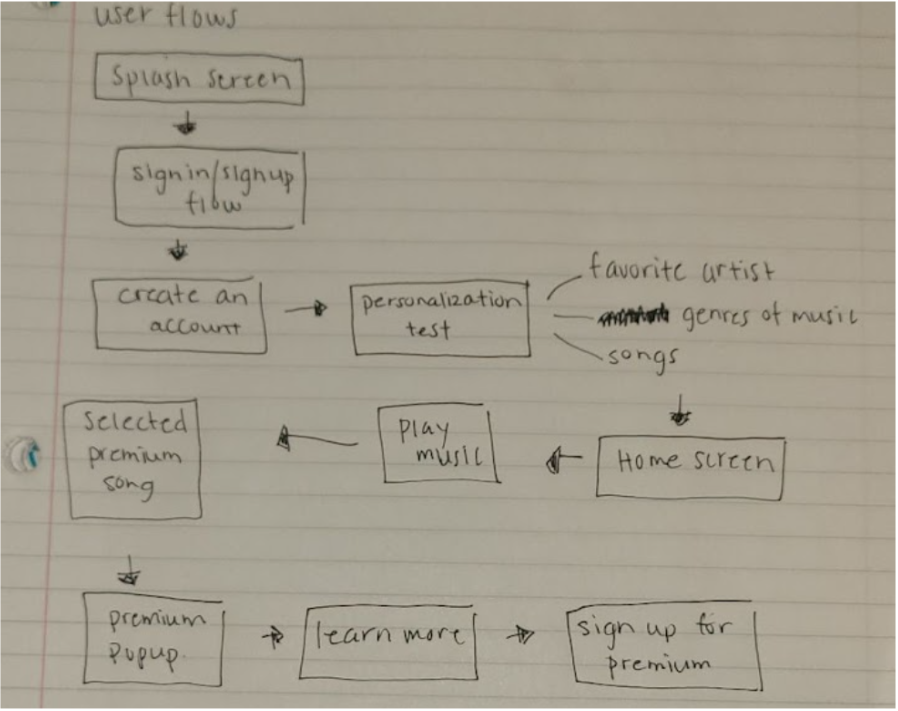 user flows
splash screen
signin/signup
flow
create an
account
personalization
test
favorite artist
genres of music
songs
Home screen
play
music
selected
premium
song
premium
popup.
learn more
sign up for
premium